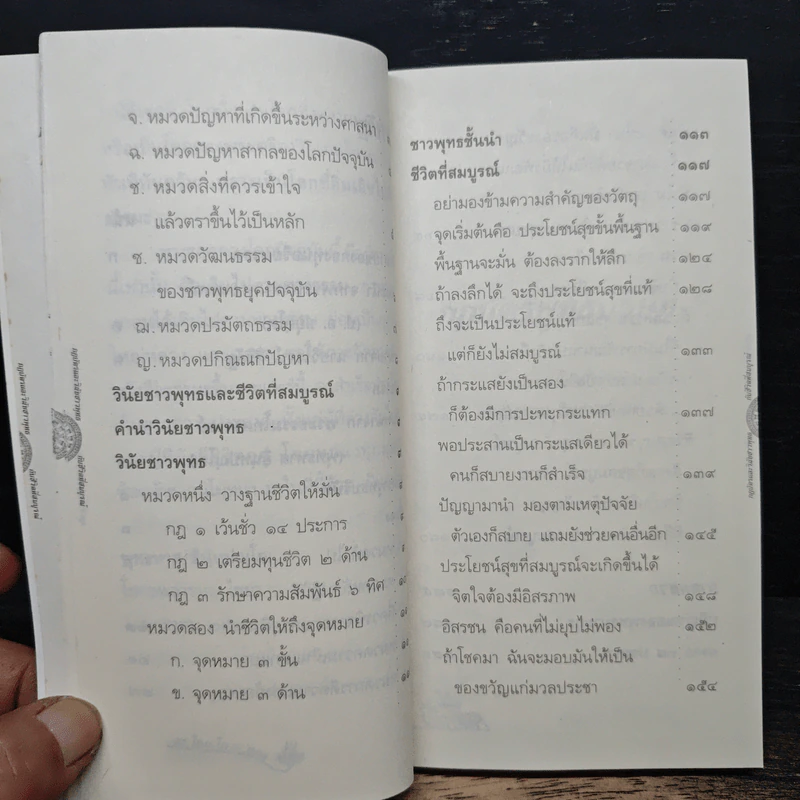 จ. หมวดปัญหาที่เกิดขึ้นระหว่างศาสนา
ฉ. หมวดปัญหาสากลของโลกปัจจุบัน
ช. หมวดสิ่งที่ควรเข้าใจ
แล้วตราขึ้นไว้เป็นหลัก
ซ. หมวดวัฒนธรรม
ของชาวพุทธยุคปัจจุบัน
ฌ. หมวดปรมัตถธรรม
ญ. หมวดปกิณณกปัญหา
วินัยชาวพุทธและชีวิตที่สมบูรณ์
คำนำวินัยชาวพุทธ
วินัยชาวพุทธ
หมวดหนึ่ง วางฐานชีวิตให้มั่น
กฎ ๑ เว้นชั่ว ๑๔ ประการ
กฎ ๒ เตรียมทุนชีวิต ๒ ด้าน
กฎ ๓ รักษาความสัมพันธ์ ๖ ทิศ
หมวดสอง นำชีวิตให้ถึงจุดหมาย
ก. จุดหมาย ๓ ขั้น
ข. จุดหมาย ๓ ด้าน
ชาวพุทธชั้นนำ ๑๑๓
ชีวิตที่สมบูรณ์ ๑๑๗
อย่ามองข้ามความสำคัญของวัตถุ ๑๑๗
จุดเริ่มต้นคือ ประโยชน์สุขขั้นพื้นฐาน ๑๑๙
พื้นฐานจะมั่น ต้องลงรากให้ลึก ๑๒๔
ถ้าลงลึกได้ จะถึงประโยชน์สุขที่แท้ ๑๒๘
ถึงจะเป็นประโยชน์แท้
แต่ก็ยังไม่สมบูรณ์ ๑๓๓
ถ้ากระแสยังเป็นสอง
ก็ต้องมีการปะทะกระแทก ๑๓๗
พอประสานเป็นกระแสเดียวได้
คนก็สบายงานก็สำเร็จ ๑๓๙
ปัญญามานำ มองตามเหตุปัจจัย
ตัวเองก็สบาย แถมยังช่วยคนอื่นอีก ๑๔๕
ประโยชน์สุขที่สมบูรณ์จะเกิดขึ้นได้
จิตใจต้องมีอิสรภาพ ๑๔๘
อิสรชน คือคนที่ไม่ยุบไม่พอง ๑๕๒
ถ้าโชคมา ฉันจะมอบมันให้เป็น
ของขวัญแก่มวลประชา ๑๕๔